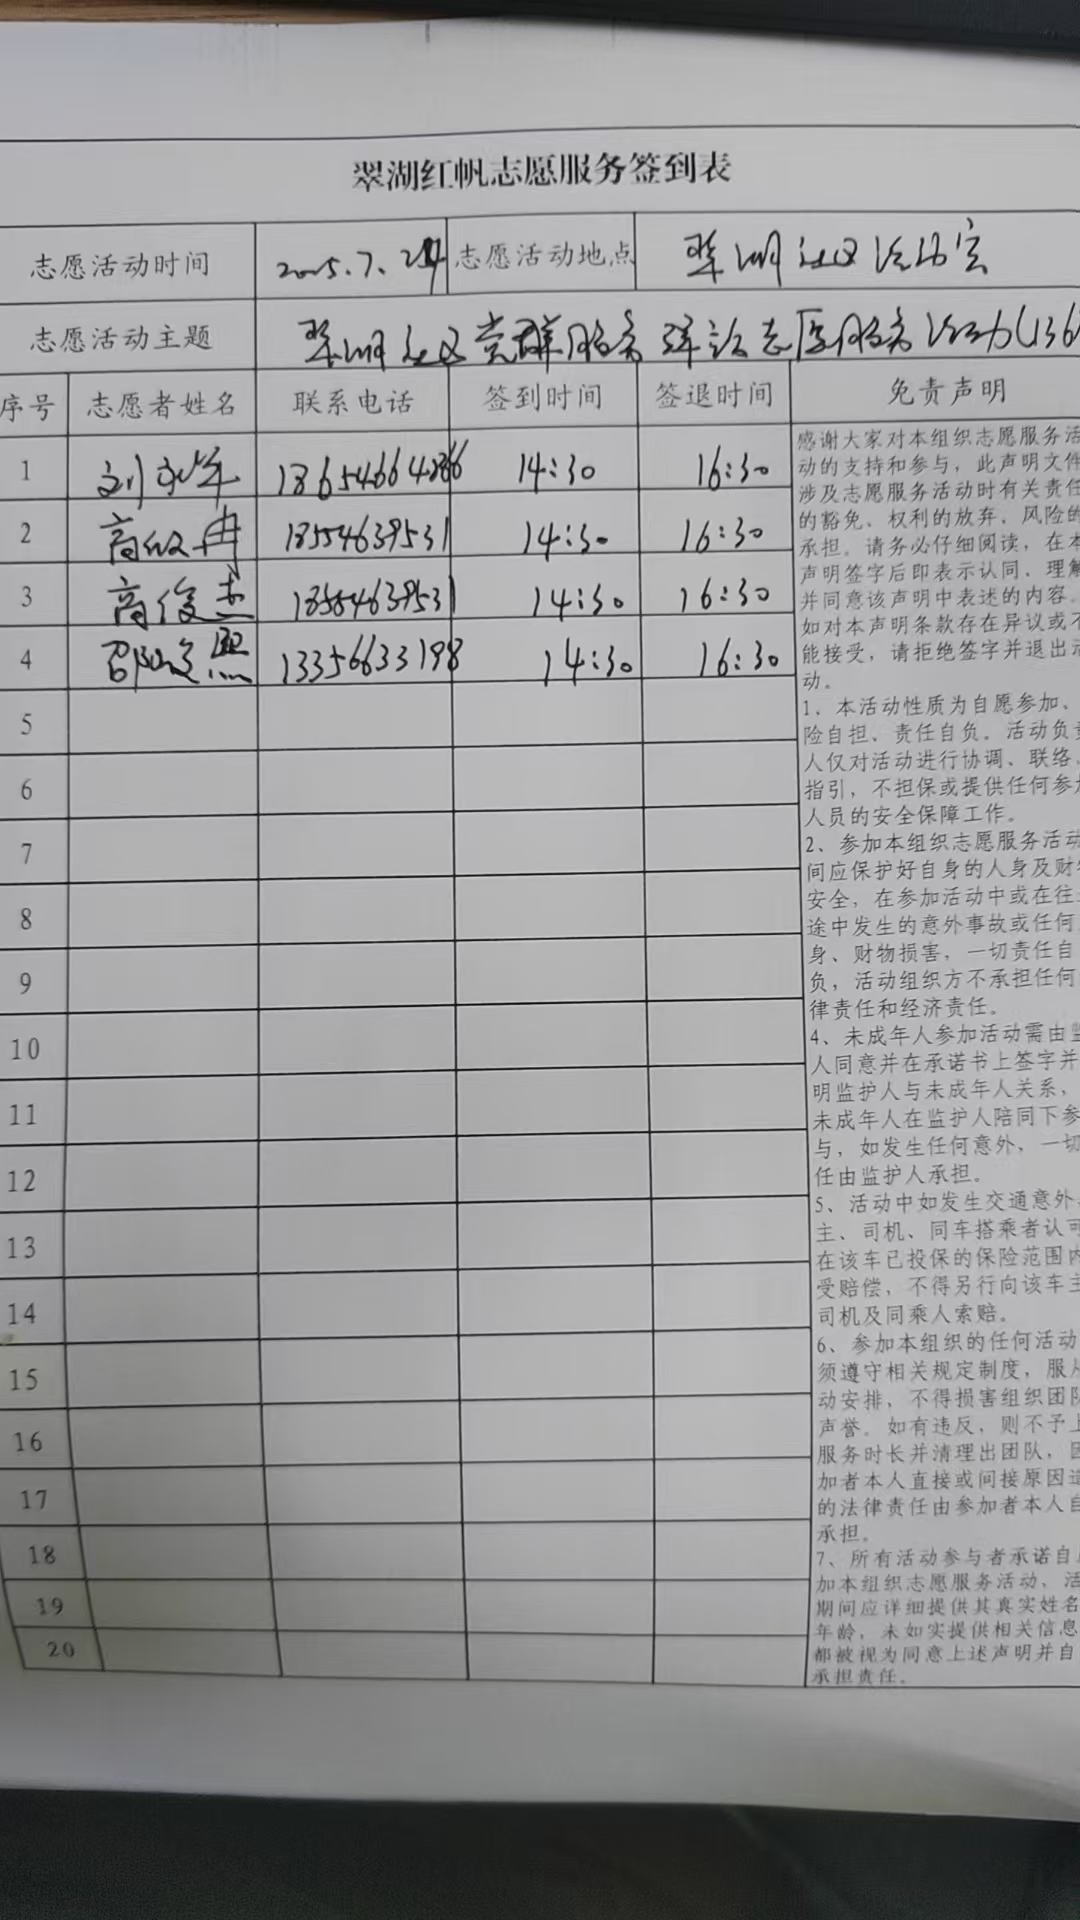 翠湖红帆志愿服务签到表
志愿活动时间 2025.7.24 志愿活动地点 翠湖社区活动室
志愿活动主题 翠湖社区党群服务 志愿服务活动(136
序号 志愿者姓名 联系电话 签到时间 签退时间 免责声明
1 刘 年 14:30 16:30
2 高 冉 18554639531 14:30 16:30
3 高俊杰 18554639531 14:30 16:30
4 邵 熙 13356633198 14:30 16:30
5
6
7
8
9
10
11
12
13
14
15
16
17
18
19
20
感谢大家对本组织志愿服务活
动的支持和参与，此声明文件
涉及志愿服务活动时有关责任
的豁免、权利的放弃、风险的
承担。请务必仔细阅读，在本
声明签字后即表示认同、理解
并同意该声明中表述的内容。
如对本声明条款存在异议或不
能接受，请拒绝签字并退出活
动。
1、本活动性质为自愿参加、
险自担、责任自负。活动负责
人仅对活动进行协调、联络、
指引，不担保或提供任何参加
人员的安全保障工作。
2、参加本组织志愿服务活动
间应保护好自身的人身及财物
安全，在参加活动中或在往
途中发生的意外事故或任何
身、财物损害，一切责任自
负，活动组织方不承担任何
律责任和经济责任。
4、未成年人参加活动需由监
人同意并在承诺书上签字并
明监护人与未成年人关系，
未成年人在监护人陪同下参
与，如发生任何意外，一切
任由监护人承担。
5、活动中如发生交通意外
主、司机、同车搭乘者认可
在该车已投保的保险范围内
受赔偿，不得另行向该车主
司机及同乘人索赔。
6、参加本组织的任何活动
须遵守相关规定制度，服从
动安排，不得损害组织团队
声誉。如有违反，则不予上
服务时长并清理出团队，因
加者本人直接或间接原因造
的法律责任由参加者本人自
承担。
7、所有活动参与者承诺自
加本组织志愿服务活动，活
期间应详细提供其真实姓名
年龄，未如实提供相关信息
都被视为同意上述声明并自
承担责任。